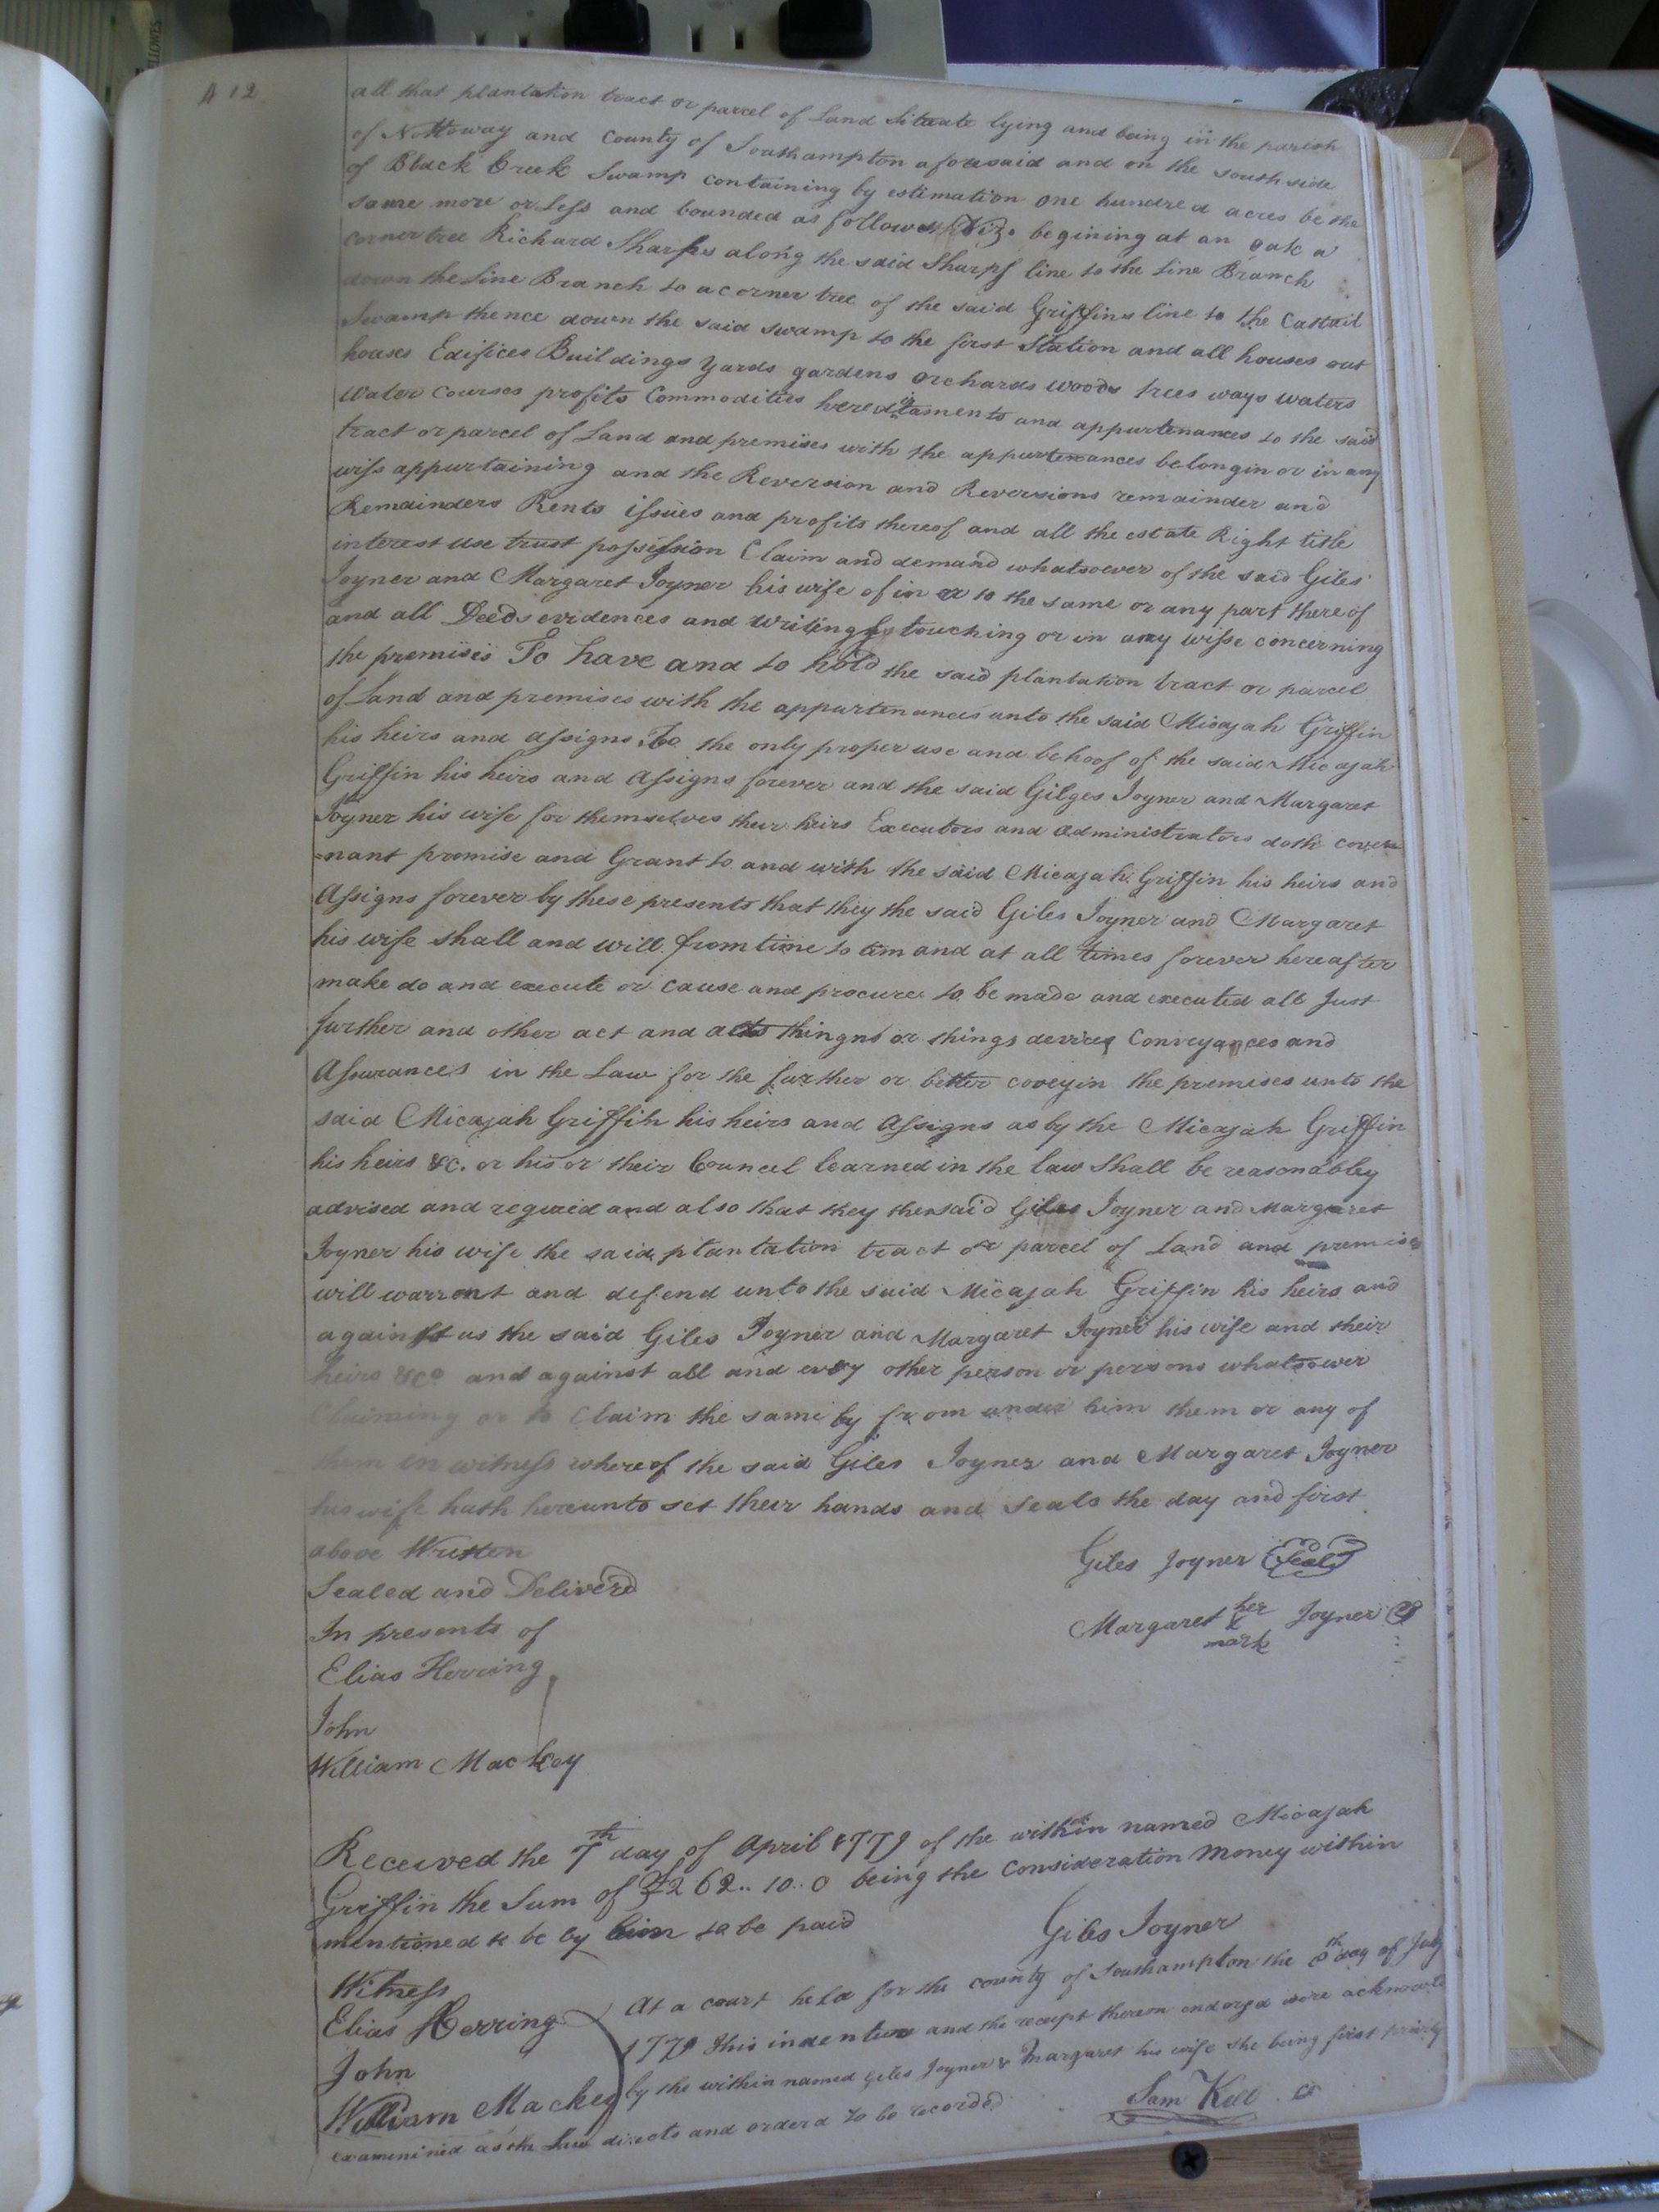 412
all that plantation tract or parcel of Land Situate lying and being in the parish
of Nottoway and County of Southampton aforesaid and on the south side
of Black Creek Swamp containing by estimation one hundred acres be the
same more or Less and bounded as follows Viz. begining at an oak a
corner tree Richard Sharps along the said Sharps line to the Line Branch
down the Line Branch to a corner tree of the said Griffins line to the Cattail
Swamp thence down the said swamp to the first Station and all houses out
houses Edifices Buildings Yards gardens orchards woods trees ways waters
Water courses profits Commodities hereditaments and appurtenances to the said
tract or parcel of Land and premises with the appurtenances belongin or in any
wiss appurtaining and the Reversion and Reversions remainder and
Remainders Rents issues and profits thereof and all the estate Right title
interest use trust possession Claim and demand whatsoever of the said Giles
Joyner and Margaret Joyner his wife of in or to the same or any part there of
and all Deeds evidences and writings touching or in any wisse concerning
the premises To have and to hold the said plantation tract or parcel
of Land and premises with the appurtenances unto the said Micajah Griffin
his heirs and assigns To the only proper use and behoof of the said Micajah
Griffin his heirs and Assigns forever and the said Gilges Joyner and Margaret
Joyner his wife for themselves their heirs Executors and administrators doth cove
=nant promise and Grant to and with the said Micajah Griffin his heirs and
Assigns forever by these presents that they the said Giles Joyner and Margaret
his wife shall and will from time to tim and at all times forever hereafter
make do and execute or cause and procure to be made and executed all Just
further and other act and acts thingns or things devices Conveyances and
Assurances in the Law for the further or better coveyin the premises unto the
said Micajah Griffin his heirs and Assigns as by the Micajah Griffin
his heirs &c. or his or their Councel learned in the law shall be reasonabley
advised and requied and also that they the said Giles Joyner and Margaret
Joyner his wife the said plantation tract or parcel of Land and premises
will warrent and defend unto the said Micajah Griffin his heirs and
against us the said Giles Joyner and Margaret Joyner his wife and their
heirs &c and against all and evry other person or persons whatsower
Claiming or to Claim the same by from under him them or any of
them in witness whereof the said Giles Joyner and Margaret Joyner
his wife hath hereunto set their hands and seals the day and first
above Written
Giles Joyner Seal
Sealed and Deliverd
In presents of
Margaret her x mark Joyner
Elias Herring
John
William Mackey
Received the 7th day of April 1779 of the within named Micajah
Griffin the Sum of £262..10..0 being the Consideration Money within
mentioned to be by him to be paid
Giles Joyner
Witness
Elias Herring
John
William Mackey
At a court held for the county of Southampton the 8th day of July
1779 this indenture and the receipt thereon endorsd were acknowle
by the within named Giles Joyner & Margaret his wife she being first privily
examenined as the Law directs and orderd to be recorded
Sam Kello